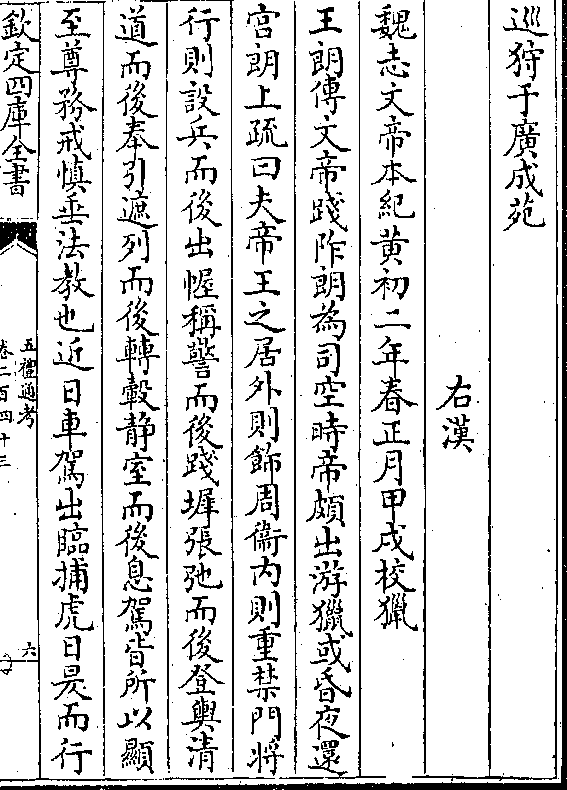 巡狩于廣成苑
右漢
魏志文帝本紀黄初二年春正月甲戌校獵
王朗傳文帝踐阼朗為司空時帝頗出游獵或昏夜還
宫朗上疏曰夫帝王之居外則飾周衞内則重禁門將
行則設兵而後出幄稱警而後踐墀張弛而後登輿清
道而後奉引遮列而後轉轂静室而後息駕皆所以顯
至尊務戒慎垂法教也近日車駕出臨捕虎日昃而行
欽定四庫全書
五禮通考
卷二百四十三
六